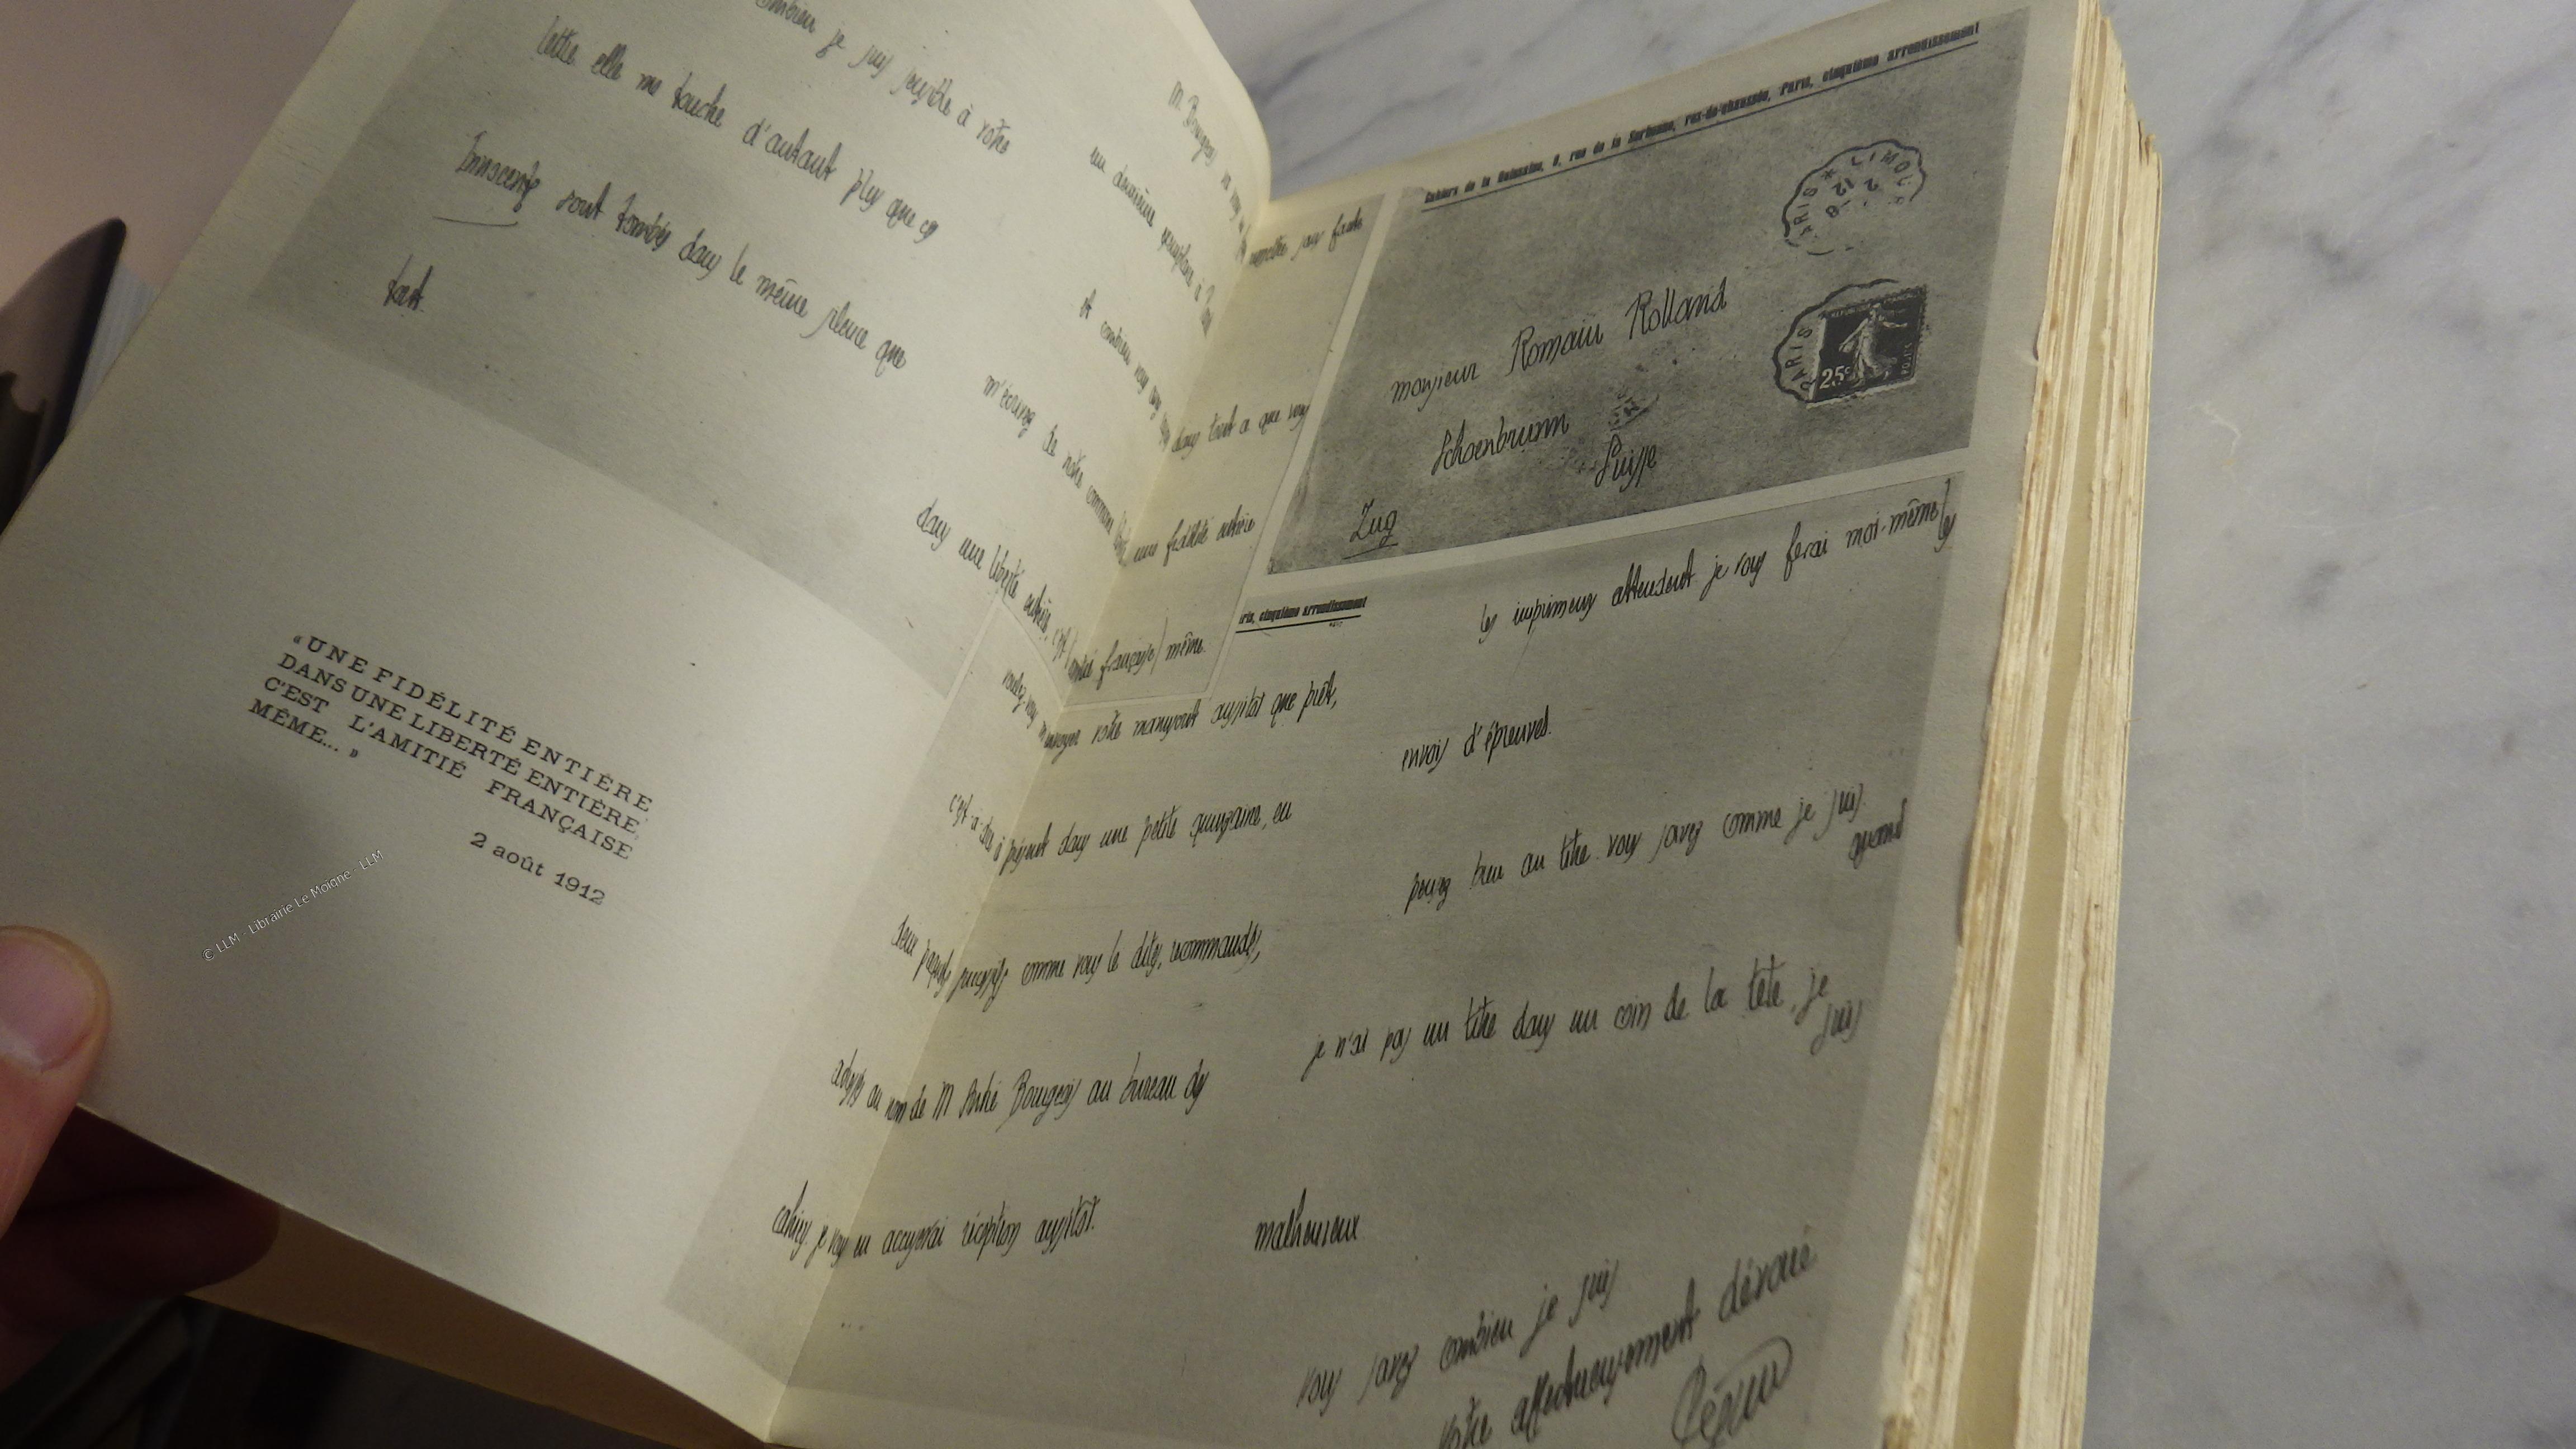 combien je suis sensible à votre
lettre elle me touche d'autant plus que ces
Innocents sont tombés dans le même silence que
tout.
M. Bourgeois
et combien vous avez raison dans tout ce que vous
m'écrivez de notre commun une fidélité entière
dans une liberté entière, c'est l'amitié française même.
« UNE FIDÉLITÉ ENTIÈRE
DANS UNE LIBERTÉ ENTIÈRE,
C'EST L'AMITIÉ FRANÇAISE
MÊME... »
2 août 1912
© LLM - Librairie Le Moigne - LLM
Cahiers de la Quinzaine, 8, rue de la Sorbonne, rez-de-chaussée, Paris, cinquième arrondissement
PARIS * LIMOU
PARIS
25c
POSTES
monsieur Romain Rolland
Schoenbrunn
Suisse
Zug
ris, cinquième arrondissement
voulez-vous m'envoyer votre manuscrit aussitôt que prêt,
c'est-à-dire à présent dans une petite quinzaine, en
deux paquets successifs comme vous le dites, recommandés,
adressés au nom de M André Bourgeois au bureau des
cahiers. je vous en accuserai réception aussitôt.
les imprimeurs attendent. je vous ferai moi-même les
envois d'épreuves.
pensez bien au titre. vous savez comme je suis
quand
je n'ai pas un titre dans un coin de la tête, je
suis
malheureux
vous savez combien je suis
votre affectueusement dévoué
Péguy